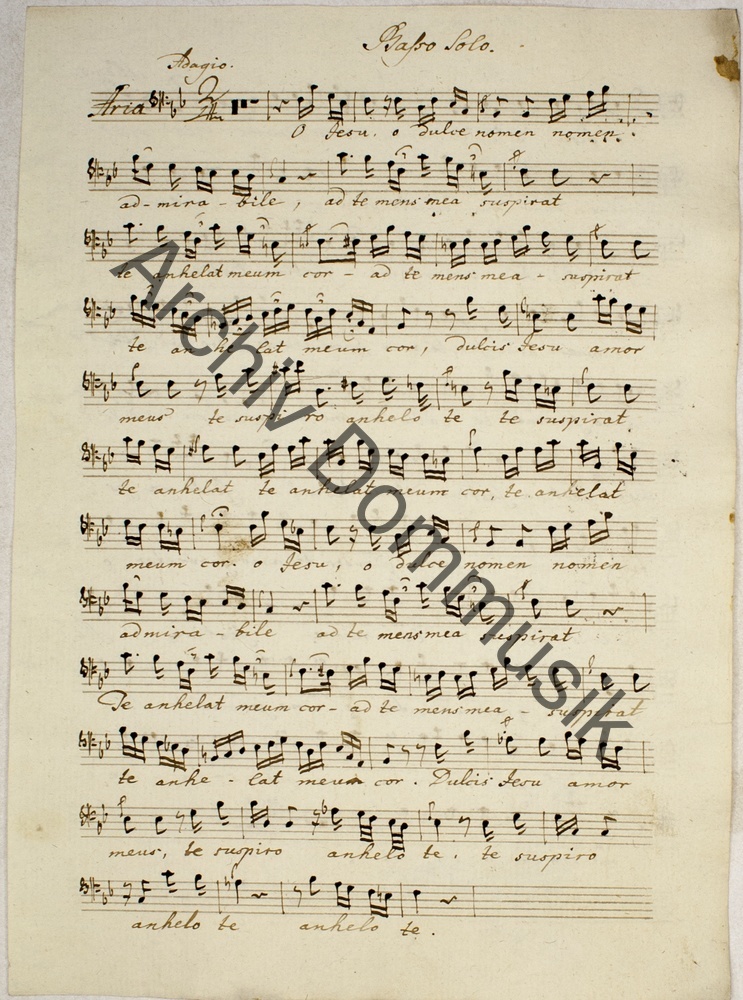 Basso Solo.
Adagio.
Aria
O Jesu. o dulce nomen nomen
ad-mira-bile, ad te mens mea suspirat
te anhelat meum cor - ad te mens mea - suspirat
te anhelat meum cor, dulcis Jesu amor
meus te suspiro anhelo te te suspirat
te anhelat te anhelat meum cor, te anhelat
meum cor. o Jesu, o dulce nomen nomen
admira-bile ad te mens mea suspirat
Te anhelat meum cor - ad te mens mea - suspirat
te anhe-lat meum cor. Dulcis Jesu amor
meus, te suspiro anhelo te. te suspiro
anhelo te anhelo te.
Archiv Dommusik